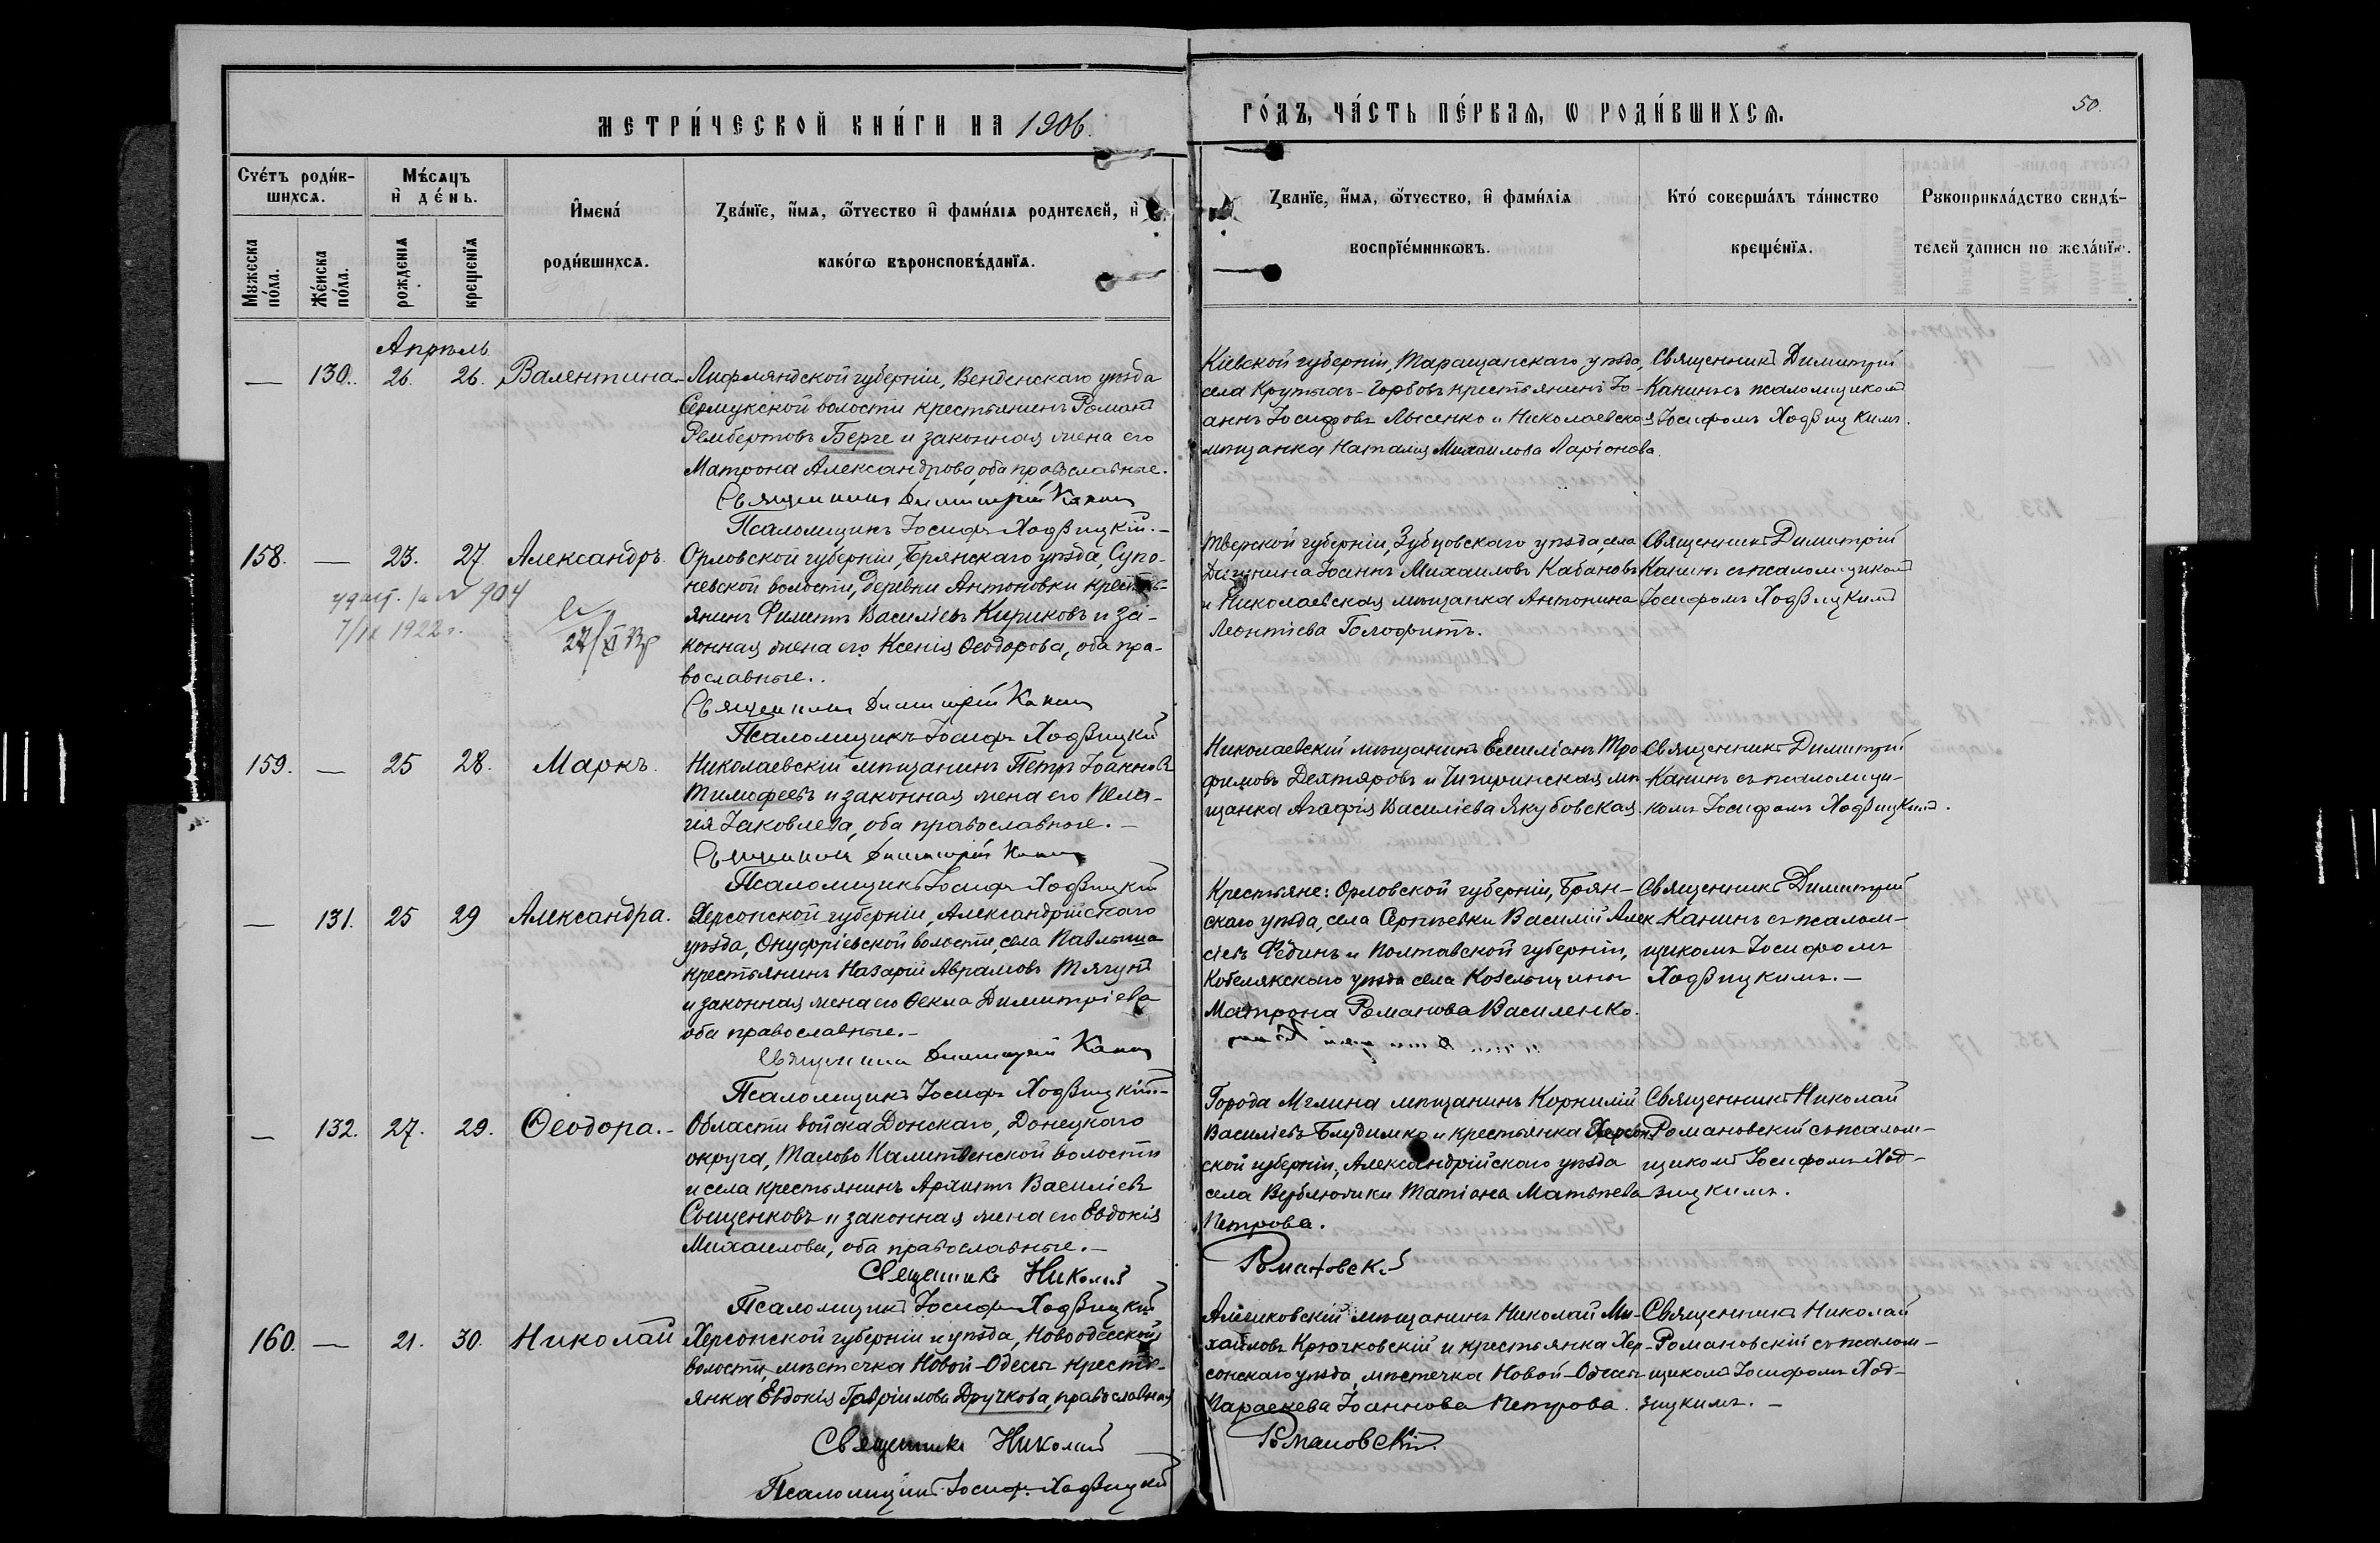 МЕТРИ́ЧЕСКОЙ КНИ́ГИ НА 1906.
ГО́ДЪ, ЧА́СТЬ ПЕ́РВАѦ, Ѡ РОДИ́ВШИХСѦ.
50.
Счетъ роди́в-
шихсѧ.
Мѣ́сѧцъ
и҆ де́нь.
Мужеска
по́ла.
Же́нска
по́ла.
рожденїѧ
крещенїѧ
И҆мена́
роди́вшихсѧ.
Зва́нїе, и҆́мѧ, ѻ҆́тчество и҆ фами́лїѧ родителей, и҆
како́гѡ вѣроисповѣ́данїѧ.
Званїе, и҆́мѧ, ѻ҆́тчество, и҆ фами́лїѧ
воспрїе́мникѡвъ.
Кто́ соверша́лъ та́инство
креще́нїѧ.
Рукоприкла́дство свидѣ́-
телей записи по жела́нїю.
Апрѣль
— 130. 26. 26. Валентина
Лифляндской губерніи, Венденскаго уѣзда
волости крестьянинъ Романъ
Рембертовъ Берге и законная жена его
Матрона Александрова, оба православные.
Священникъ Димитрій Канин
Псаломщикъ Іосифъ Ходзицкій.—
Кіевской губерніи, Таращанскаго уѣзда,
села Крутыхъ-Горбовъ крестьянинъ Іо-
аннъ Іосифовъ Лысенко и Николаевская
мѣщанка Наталія Михаилова Ларіонова.
Священникъ Димитрій
Канинъ съ псаломщикомъ
Іосифомъ Ходзицкимъ.
158. — 23. 27 Александръ.
№ 904
7/IX 1922 г.
Орловской губерніи, Брянскаго уѣзда, Супо-
невской волости, деревни Антоновки кресть-
янинъ Филиппъ Василіевъ Кириковъ и за-
конная жена его Ксенія Ѳеодорова, оба пра-
вославные.
Священникъ Димитрій Канин
Псаломщикъ Іосифъ Ходзицкій
Тверской губерніи, Зубцовскаго уѣзда, села
Дягунина Іоаннъ Михаиловъ Кабановъ
и Николаевская мѣщанка Антонина
Леонтіева Голофитъ.
Священникъ Димитрій
Канинъ съ псаломщикомъ
Іосифомъ Ходзицкимъ
159. — 25 28. Маркъ.
Николаевскій мѣщанинъ Петръ Іоанновъ
Тимофеевъ и законная жена его Пела-
гія Іаковлева, оба православные.—
Священникъ Димитрій Канин
Псаломщикъ Іосифъ Ходзицкій
Николаевскій мѣщанинъ Емиліанъ Тро-
фимовъ Дехтяровъ и Чигиринская мѣ-
щанка Агафія Василіева Якубовская.
Священникъ Димитрій
Канинъ съ псаломщи-
комъ Іосифомъ Ходзицкимъ.
— 131. 25 29 Александра.
Херсонской губерніи, Александрійскаго
уѣзда, Онуфріевской волости, села Павлыша
крестьянинъ Назарій Аврамовъ Тягунъ
и законная жена его Ѳекла Димитріева
оба православные.—
Священникъ Димитрій Канин
Псаломщикъ Іосифъ Ходзицкій.—
Крестьяне: Орловской губерніи, Брян-
скаго уѣзда, села Сергѣевки Василій Алек-
сіевъ Фединъ и Полтавской губерніи,
Кобелякскаго уѣзда села Козельщины
Матрона Романова Василенко.
Священникъ Димитрій
Канинъ съ псалом-
щикомъ Іосифомъ
Ходзицкимъ.—
— 132. 27. 29. Ѳеодора.—
Области войска Донскаго, Донецкаго
округа, Малово Калитвенской волости
и села крестьянинъ Архиппъ Василіевъ
Сыщенковъ и законная жена его Евдокія
Михаилова, оба православные.—
Священникъ Николай
Псаломщикъ Іосифъ Ходзицкій
Города Мглина мѣщанинъ Корнилій
Василіевъ Блудимко и крестьянка Херсон-
ской губерніи, Александрійскаго уѣзда
села Верблюжки Татіана Матѳеева
Петрова.
Романовскій
Священникъ Николай
Романовскій съ псалом-
щикомъ Іосифомъ Ход-
зицкимъ.
160. — 21. 30. Николай
Херсонской губерніи и уѣзда, Новоодесской
волости, мѣстечка Новой-Одессы кресть-
янка Евдокія Гавріилова Дручкова, православная
Священникъ Николай
Псаломщикъ Іосифъ Ходзицкій
Алешковскій мѣщанинъ Николай Ми-
хаиловъ Крючковскій и крестьянка Хер-
сонскаго уѣзда, мѣстечка Новой-Одессы
Параскева Іоаннова Петрова.
Романовскій.
Священникъ Николай
Романовскій съ псалом-
щикомъ Іосифомъ Ход-
зицкимъ.—